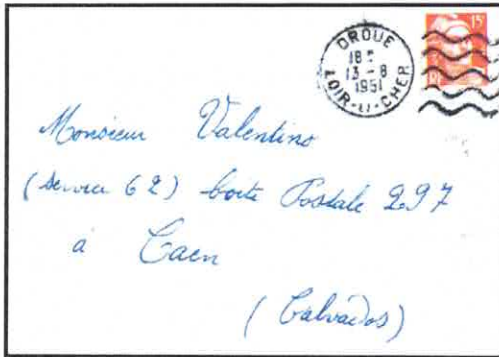 DROUE
18
13 - 8
1951
LOIR-&-CHER
15
RF
Monsieur Valentino
(service 62) boite Postale 297
à Caen
(Calvados)